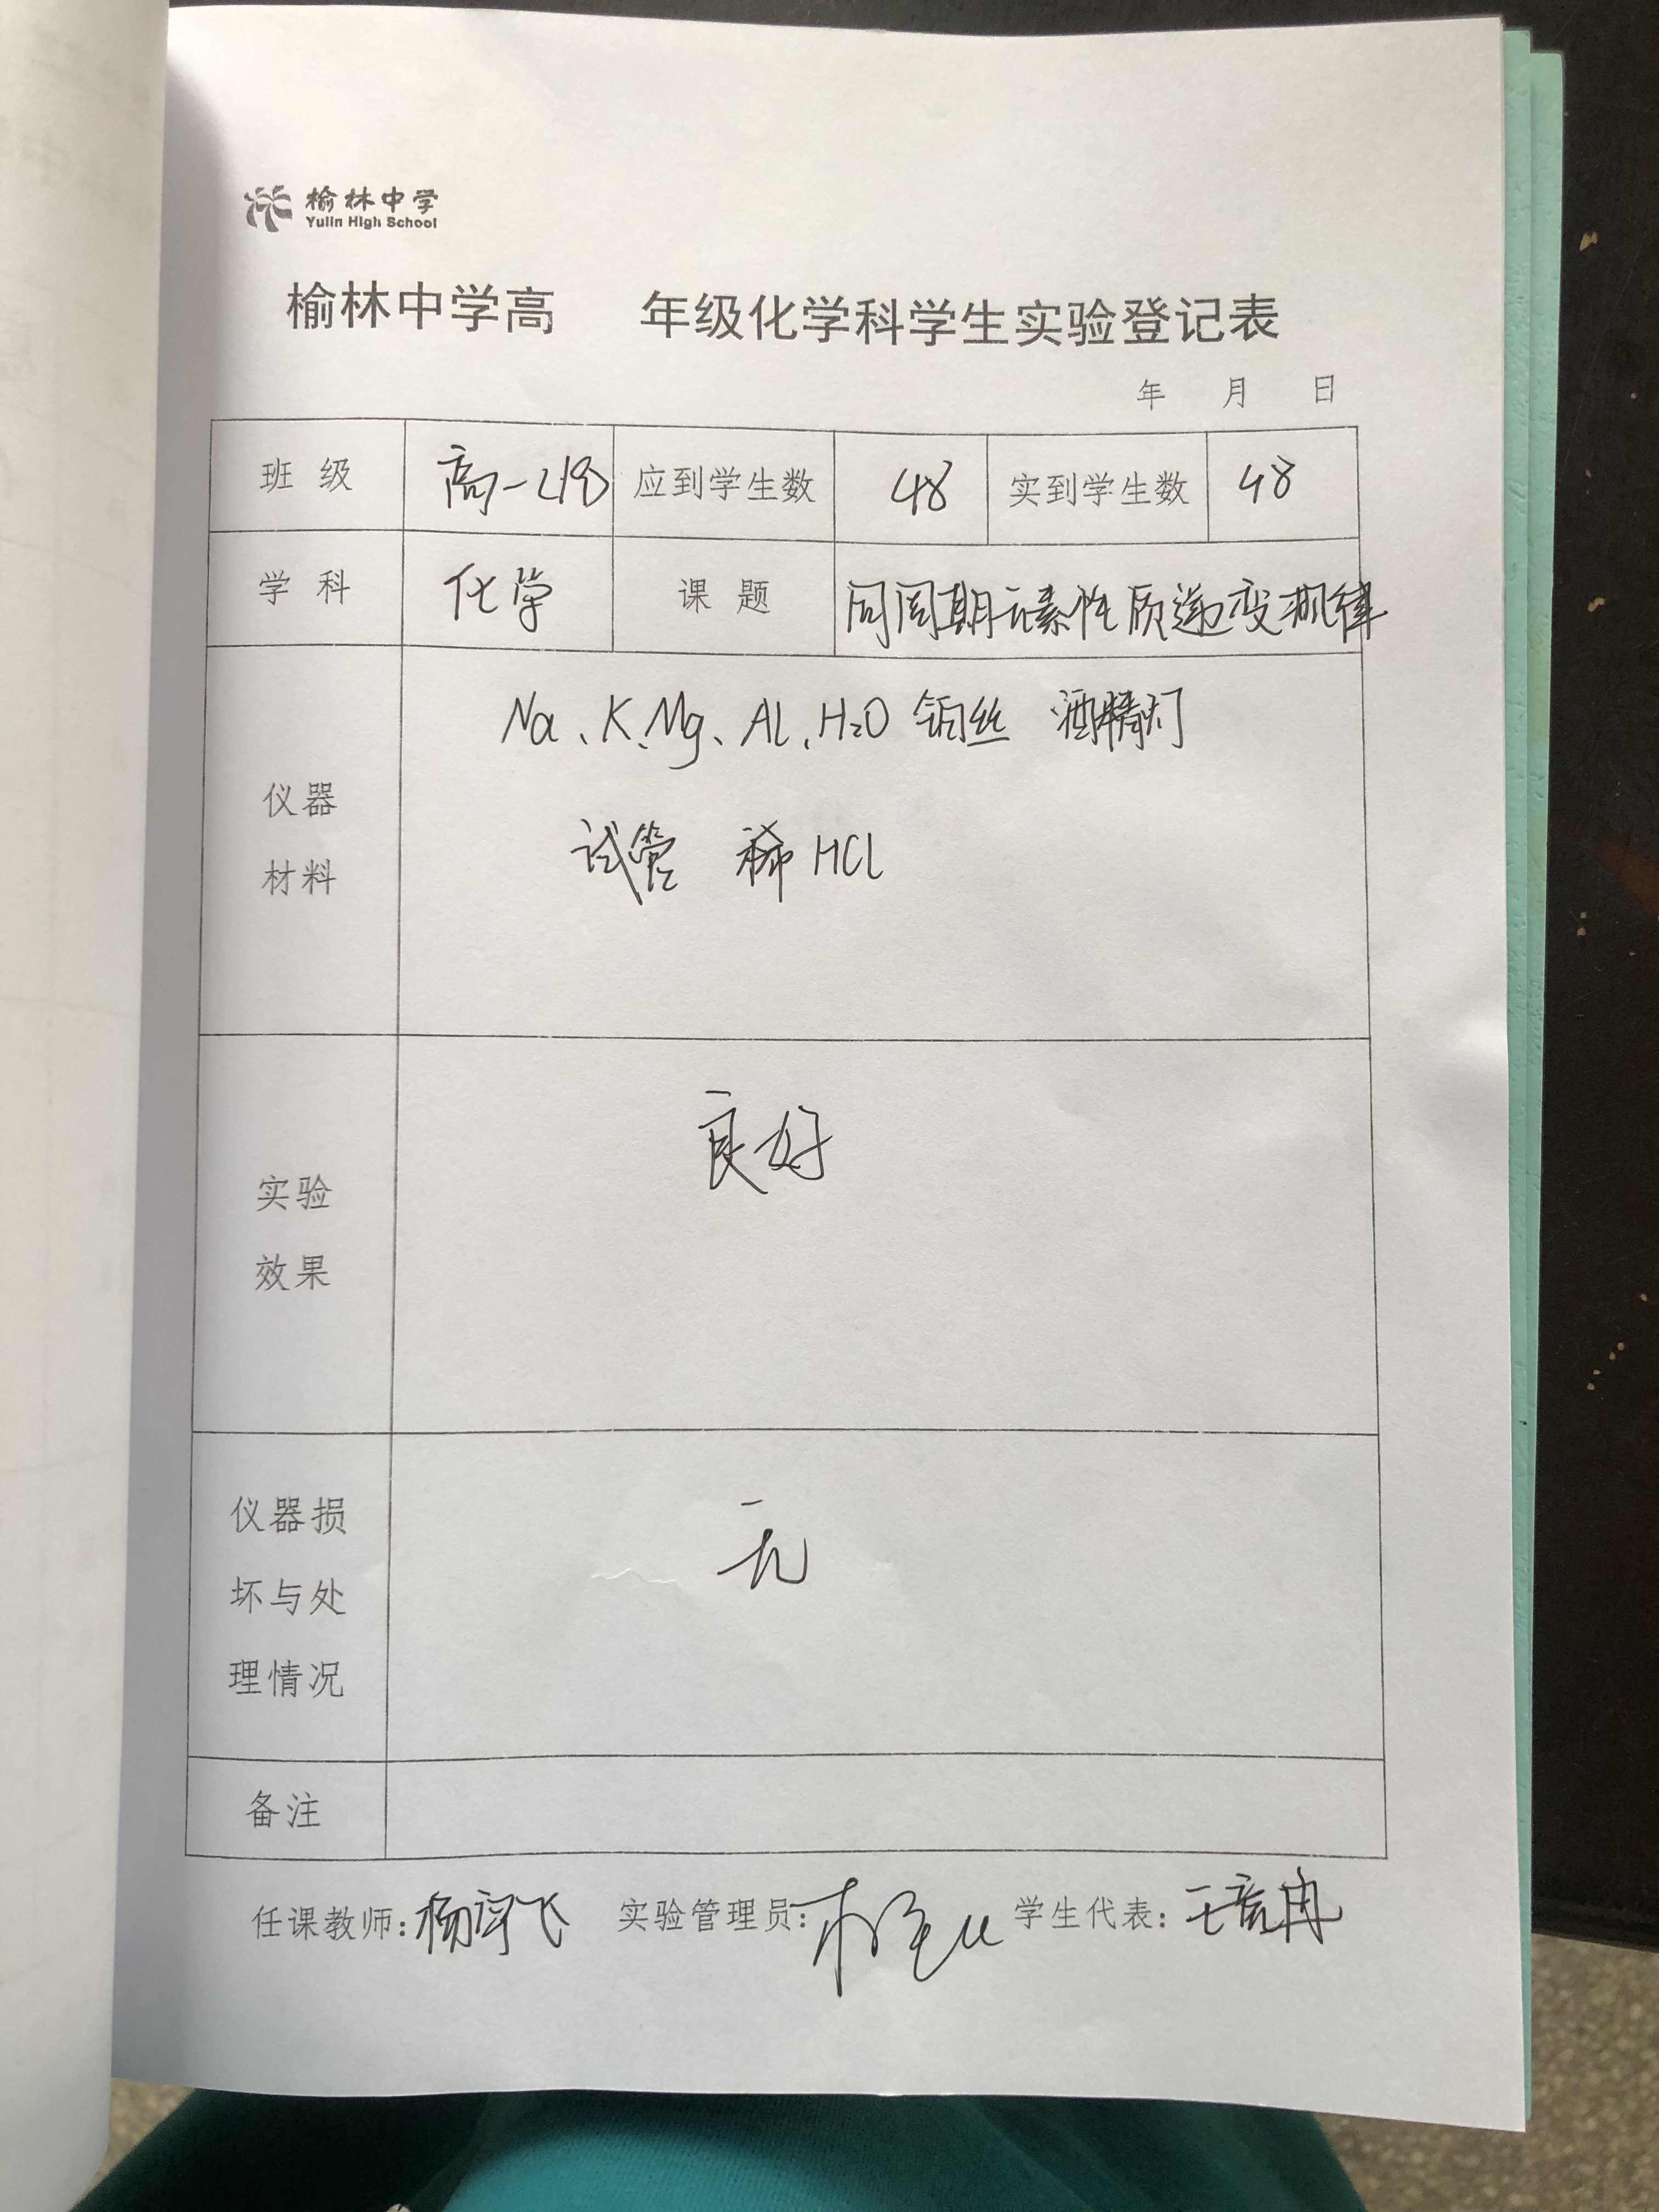 榆林中学
Yulin High School
榆林中学高 年级化学科学生实验登记表
年 月 日
班 级 高一(18) 应到学生数 48 实到学生数 48
学 科 化学 课 题 同周期元素性质递变规律
Na、K、Mg、Al、H2O 铂丝 酒精灯
仪器
试管 稀HCl
材料
良好
实验
效果
仪器损
无
坏与处
理情况
备注
任课教师: 杨 飞 实验管理员: 学生代表: 王